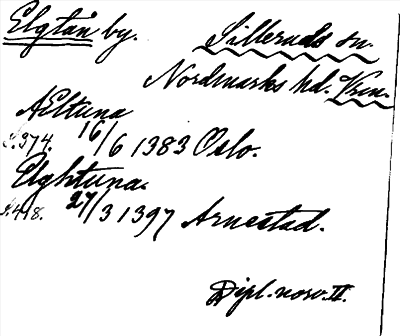 Elgtån by. Silleruds sn.
Nordmarks hd. Vrm.
Æltuna
S. 374. 16/6 1383 Oslo.
Elghtuna.
S. 418. 27/3 1397 Arnestad.
Dipl. norv. II.